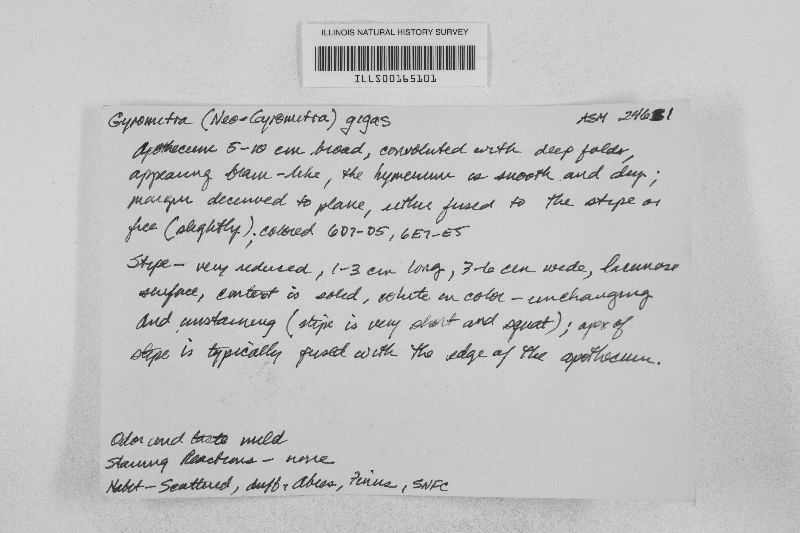 ILLINOIS NATURAL HISTORY SURVEY
ILLS00165101
Gyromitra (Neo-Gyromitra) gigas ASM 2461
Apothecium 5-10 cm broad, convoluted with deep folds,
appearing brain-like, the hymenium is smooth and dry;
margin decurved to plane, either fused to the stipe or
free (slightly); colored 6D7-D5, 6E7-E5
Stipe - very reduced, 1-3 cm long, 3-6 cm wide, lacunose
surface, context is solid, white in color - unchanging
and unstaining (stipe is very short and squat); apex of
stipe is typically fused with the edge of the apothecium.
Odor and taste mild
Staining Reactions - none
Habit - Scattered, duff, Abies, Pinus, SNFC